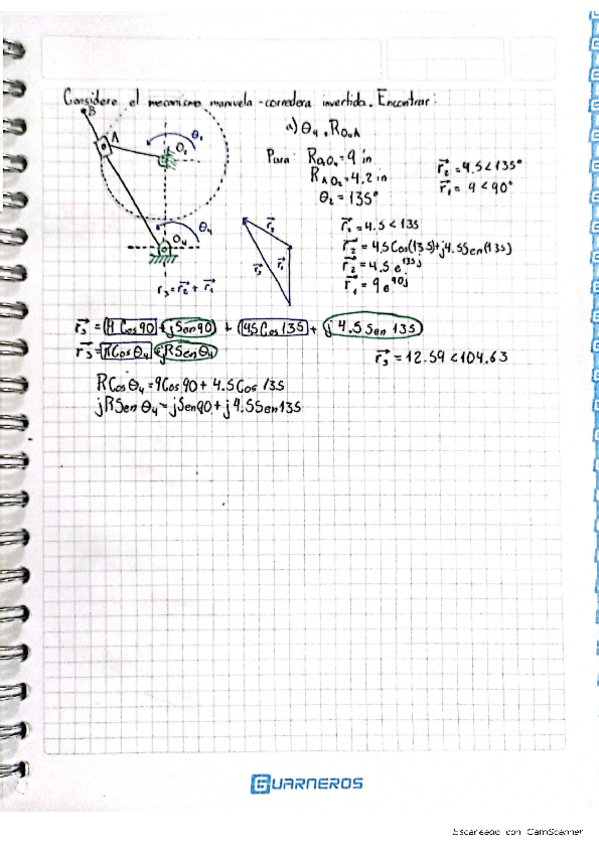 Considere el mecanismo manivela-corredera invertida. Encontrar:
a) θ₄, R_O₄A
B
A
θ₂
O₂
Para: R_O₂O₄ = 9 in
R_AO₂ = 4.2 in
θ₂ = 135°
r₂ = 4.5<135°
r₁ = 9<90°
θ₄
O₄
r₂
r₃
r₁
r₃ = r₂ + r₁
r₂ = 4.5 < 135
r₂ = 4.5 Cos(135)+j4.5Sen(135)
r₂ = 4.5 e^135j
r₁ = 9 e^90j
r₃ = Cos 90 + jSen90 + 4.5 Cos 135 + j 4.5 Sen 135
r₃ = RCos θ₄ + jRSen θ₄
r₃ = 12.59 <104.63
RCos θ₄ = 9Cos 90 + 4.5 Cos 135
jRSen θ₄ = jSen90 + j4.5Sen135
GUARNEROS
Escaneado con CamScanner